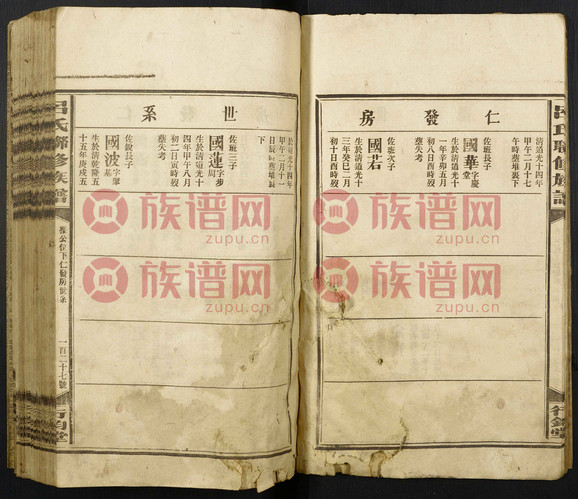 呂氏聯修族譜
行鈞堂
仁發房
清道光十四年
甲午二月十七
午時葬堪裏下
佐班長子
國華字慶堂
生於清道光十
一年辛卯五月
初八日酉時歿
葬失考
佐班次子
國若
生於清道光十
三年癸巳二月
初十日酉時歿
世系
於清道光十四年
甲午二月十一
日辰時葬堪裏
下
佐班三子
國蓮字步周
生於清道光十
四年甲午八月
初二日寅時歿
葬失考
佐敘長子
國波字肇基
生於清乾隆五
十五年庚戌五
呂氏聯修族譜
公位下仁發房世系
一百二十七號
行鈞堂
族谱网
zupu.cn
族谱网
zupu.cn
族谱网
zupu.cn
族谱网
zupu.cn